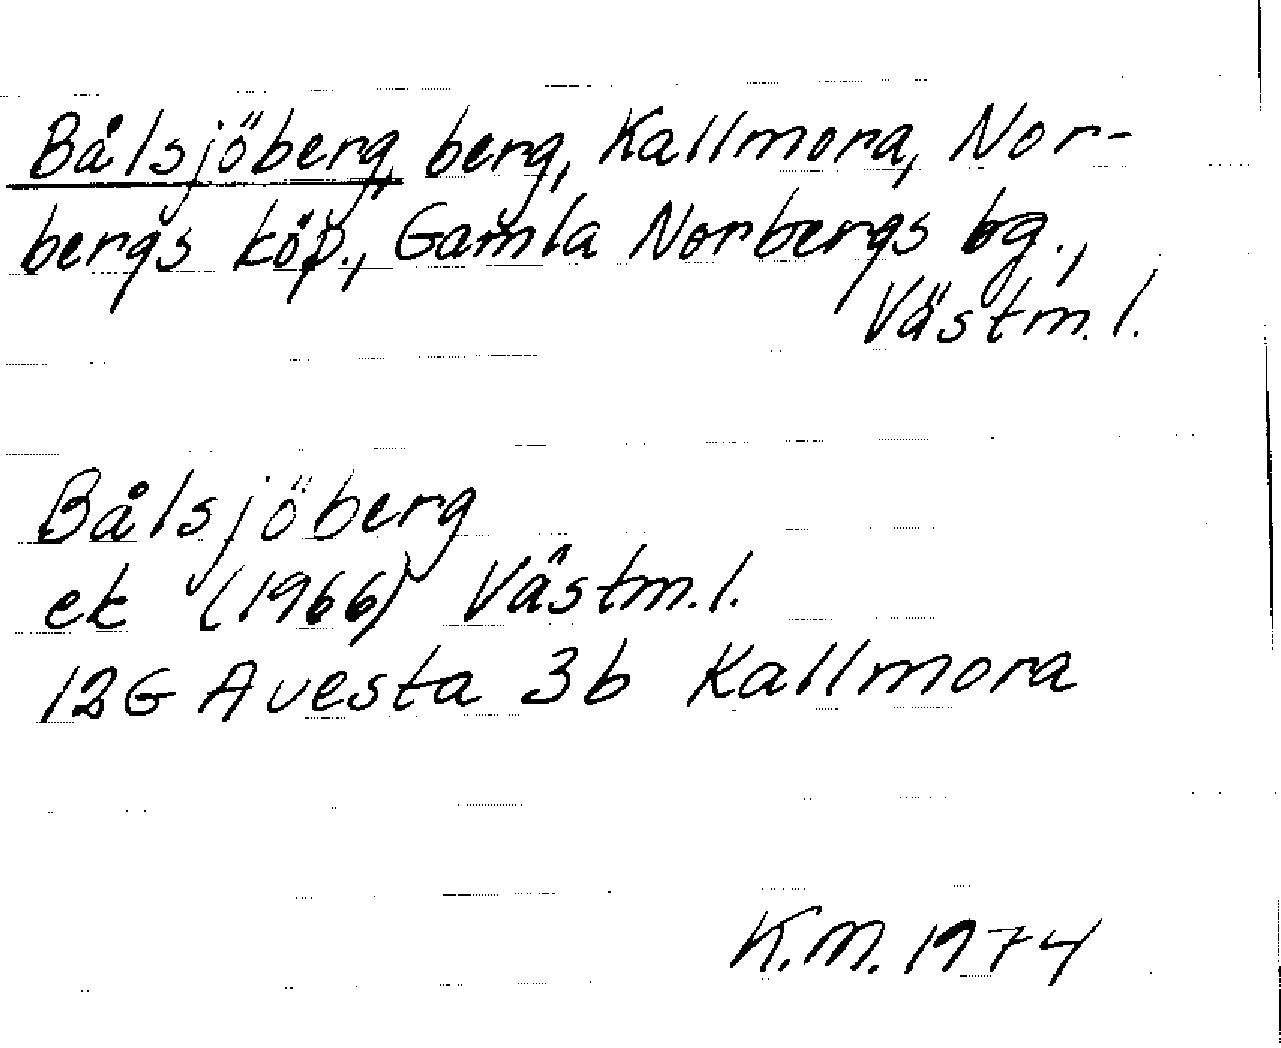 Bålsjöberg, berg, Kallmora, Nor-
bergs köp., Gamla Norbergs bg.,
Västm. l.
Bålsjöberg
ek (1966) Västm. l.
12G Avesta 3b Kallmora
K.M. 1974